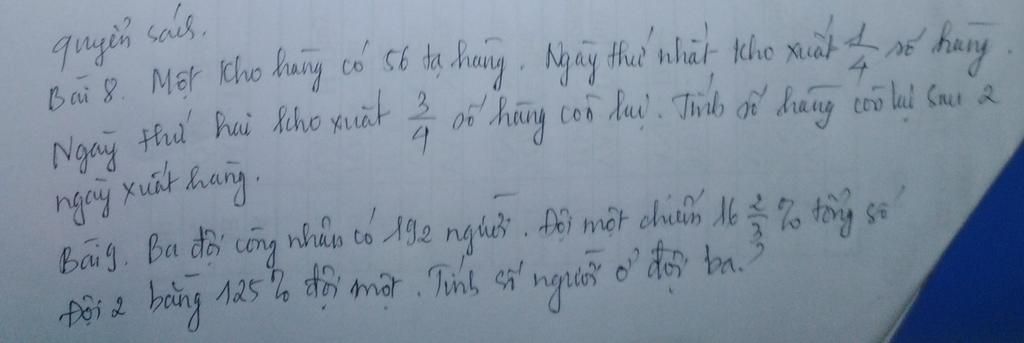 quyển sách.
Bài 8. Một kho hàng có 56 tạ hàng. Ngày thứ nhất kho xuất 1/4 số hàng.
Ngày thứ hai kho xuất 3/4 số hàng còn lại. Tính số hàng còn lại sau 2
ngày xuất hàng.
Bài 9. Ba đội công nhân có 192 người. Đội một chiếm 16 2/3 % tổng số
Đội 2 bằng 125% đội một. Tính số người ở đội ba.?